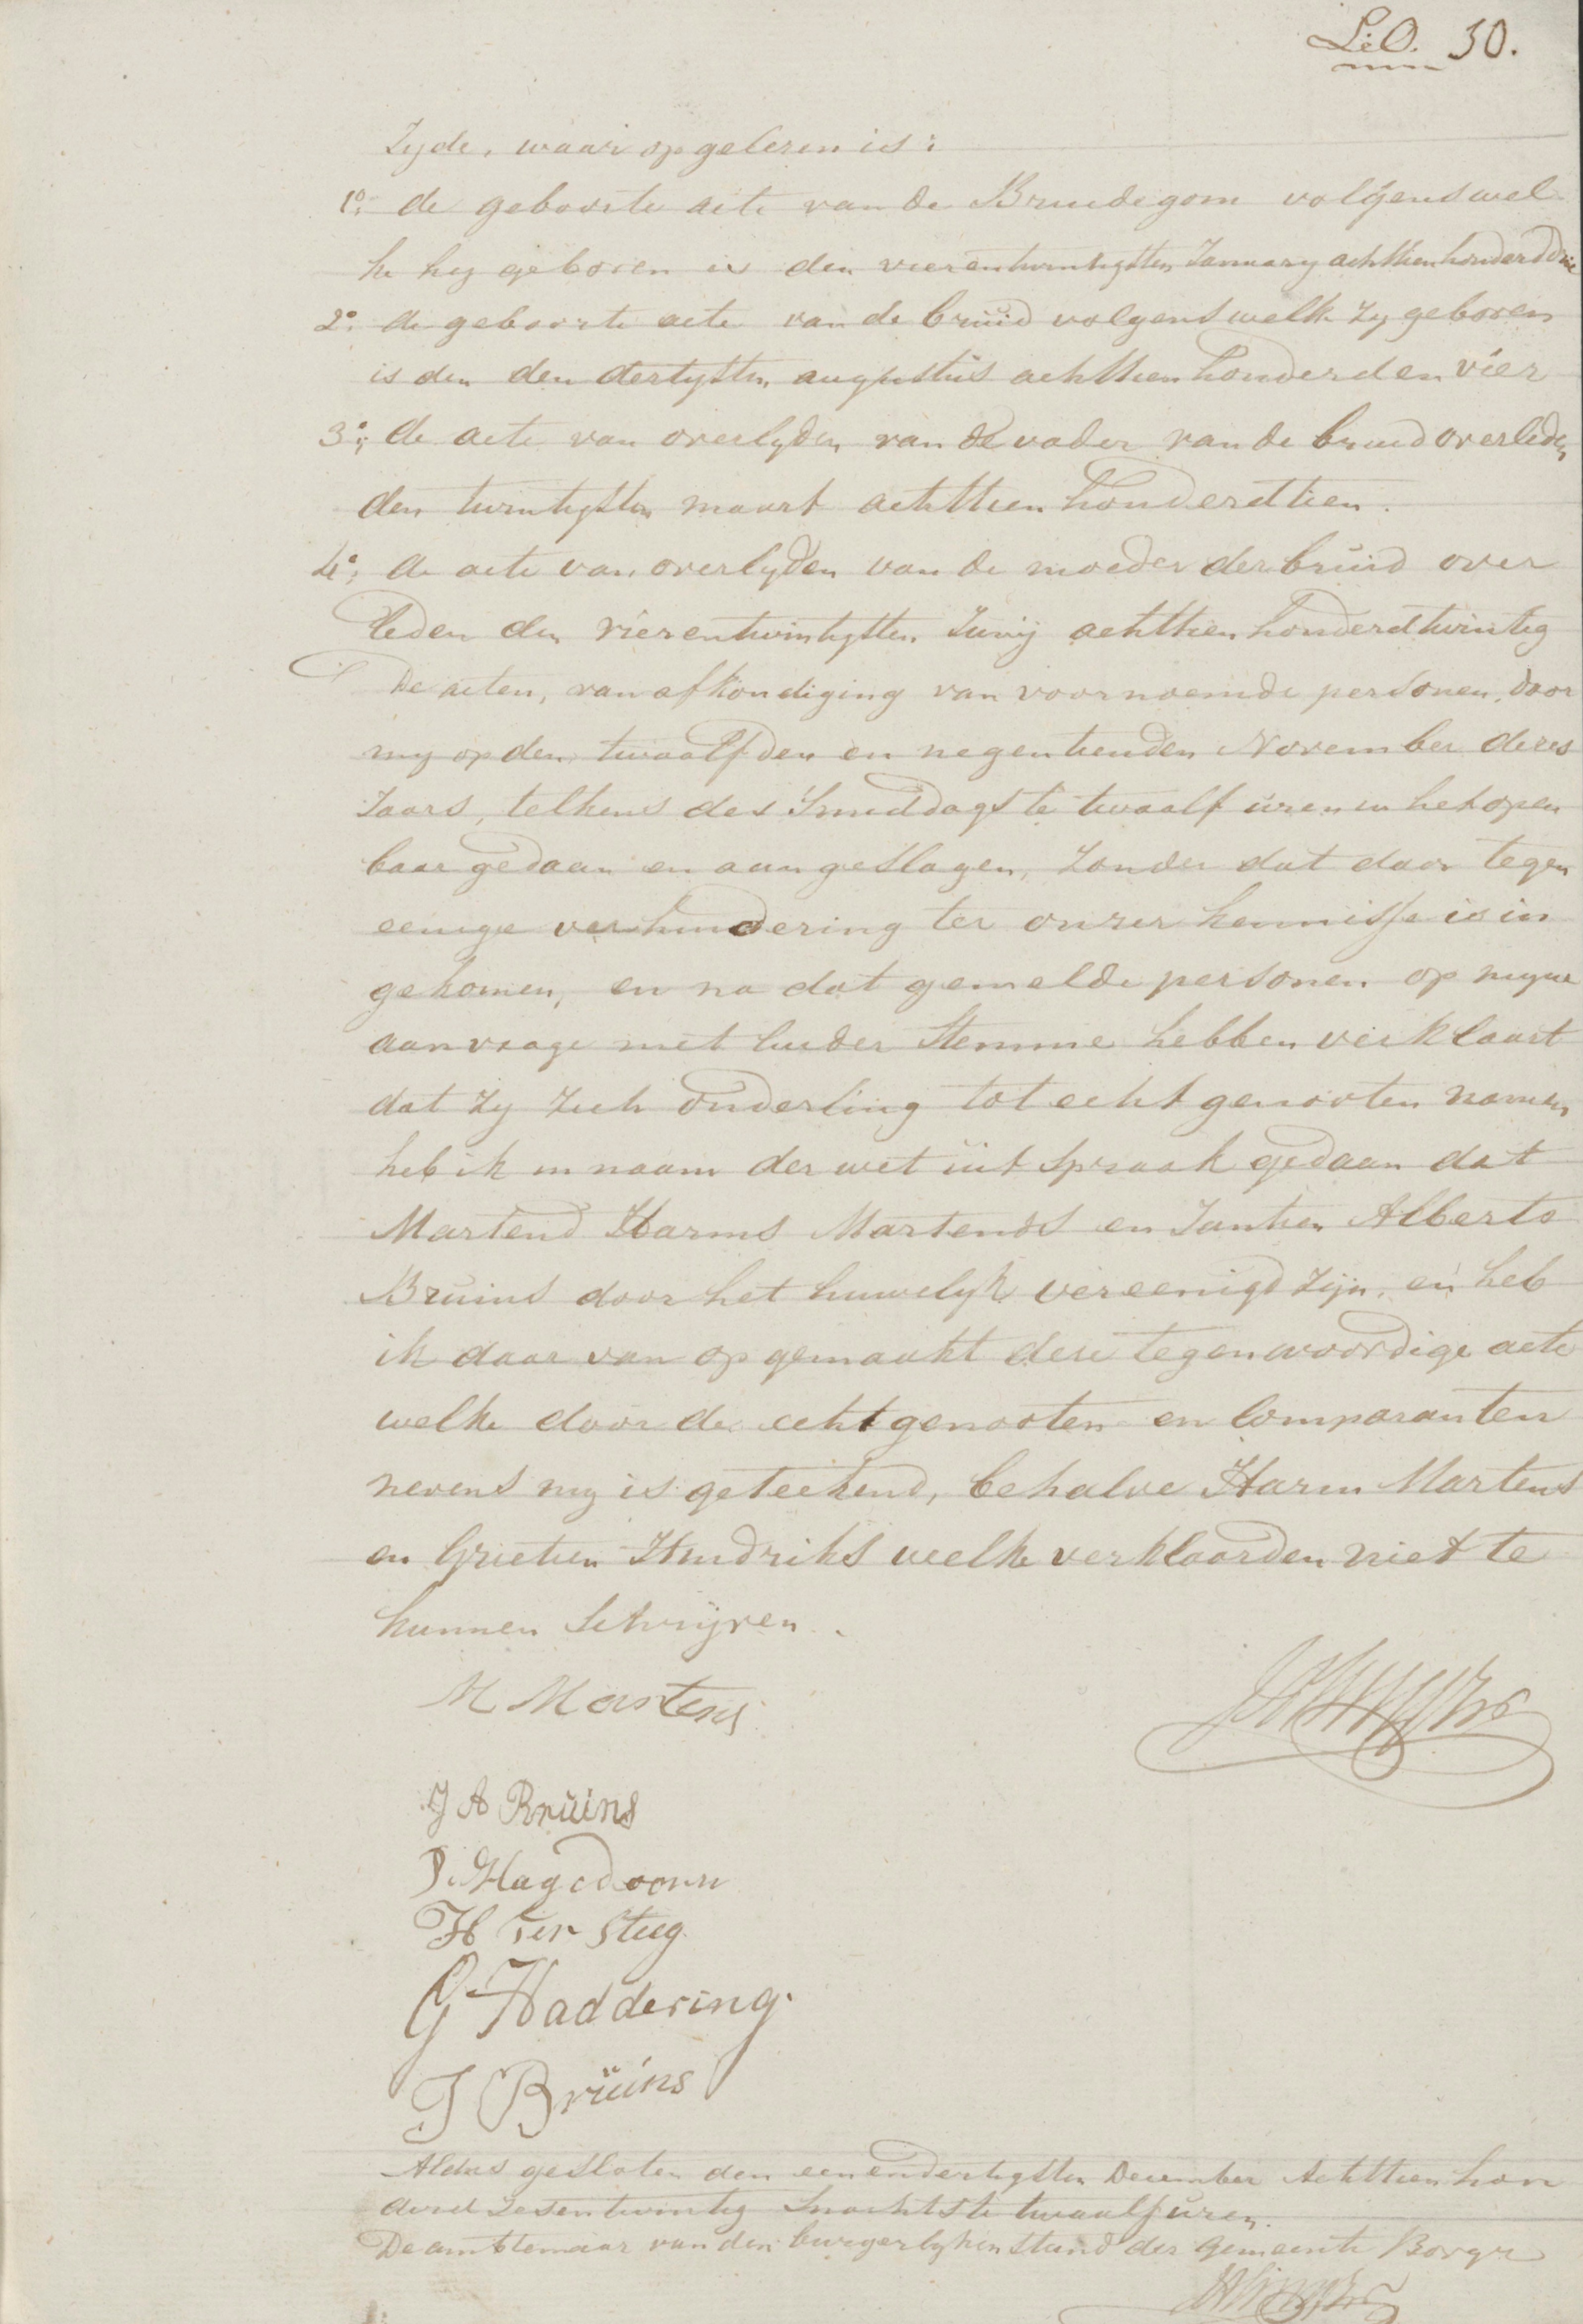 L:O. 30.
Zyde, waar op gelesen is:
1o: de geboorte acte van de Bruidegom volgens wel
ke hy geboren is den vierentwintigsten January achttienhonderd drie
2o: de geboorte acte van de bruid volgens welk zy geboren
is den den dertigsten augustus achttien honderd en vier
3o: de acte van overlyden van de vader van de bruid overleden
den twintigsten maart achttien honderd tien.
4o: de acte van overlyden van de moeder der bruid over
leden den vierentwintigsten Junij achttien honderd twintig
De acten, van afkondiging van voornoemde personen, door
my op den twaalfden en negentienden November dezes
Jaars, telkens des Smiddags te twaalf uren in het open
baar gedaan en aangeslagen, zonder dat daar tegen
eenige verhindering ter onzer kennisse is in
gekomen, en na dat gemelde personen op myne
aanvrage met luider Stemme hebben verklaart
dat zy zich onderling tot echtgenooten namen
heb ik in naam der wet uit Spraak gedaan dat
Martend Harms Martends en Jantien Alberts
Bruins door het huwelyk vereenigd zijn, en heb
ik daar van op gemaakt dese tegenwoordige acte
welke door de echtgenooten en Comparanten
nevens my is geteekend, behalve Harm Martens
en Grietien Hindriks welke verklaarden niet te
kunnen Schrijven.
M Martens
J A Bruins
Hagedoorn
H Ter Steeg
G Haddering.
J Bruins
Aldus gesloten den eenendertigsten December Achttien hon
derd zesentwintig Snachts te twaalf uren.
De ambtenaar van den burgerlyken stand der Gemeente Borger